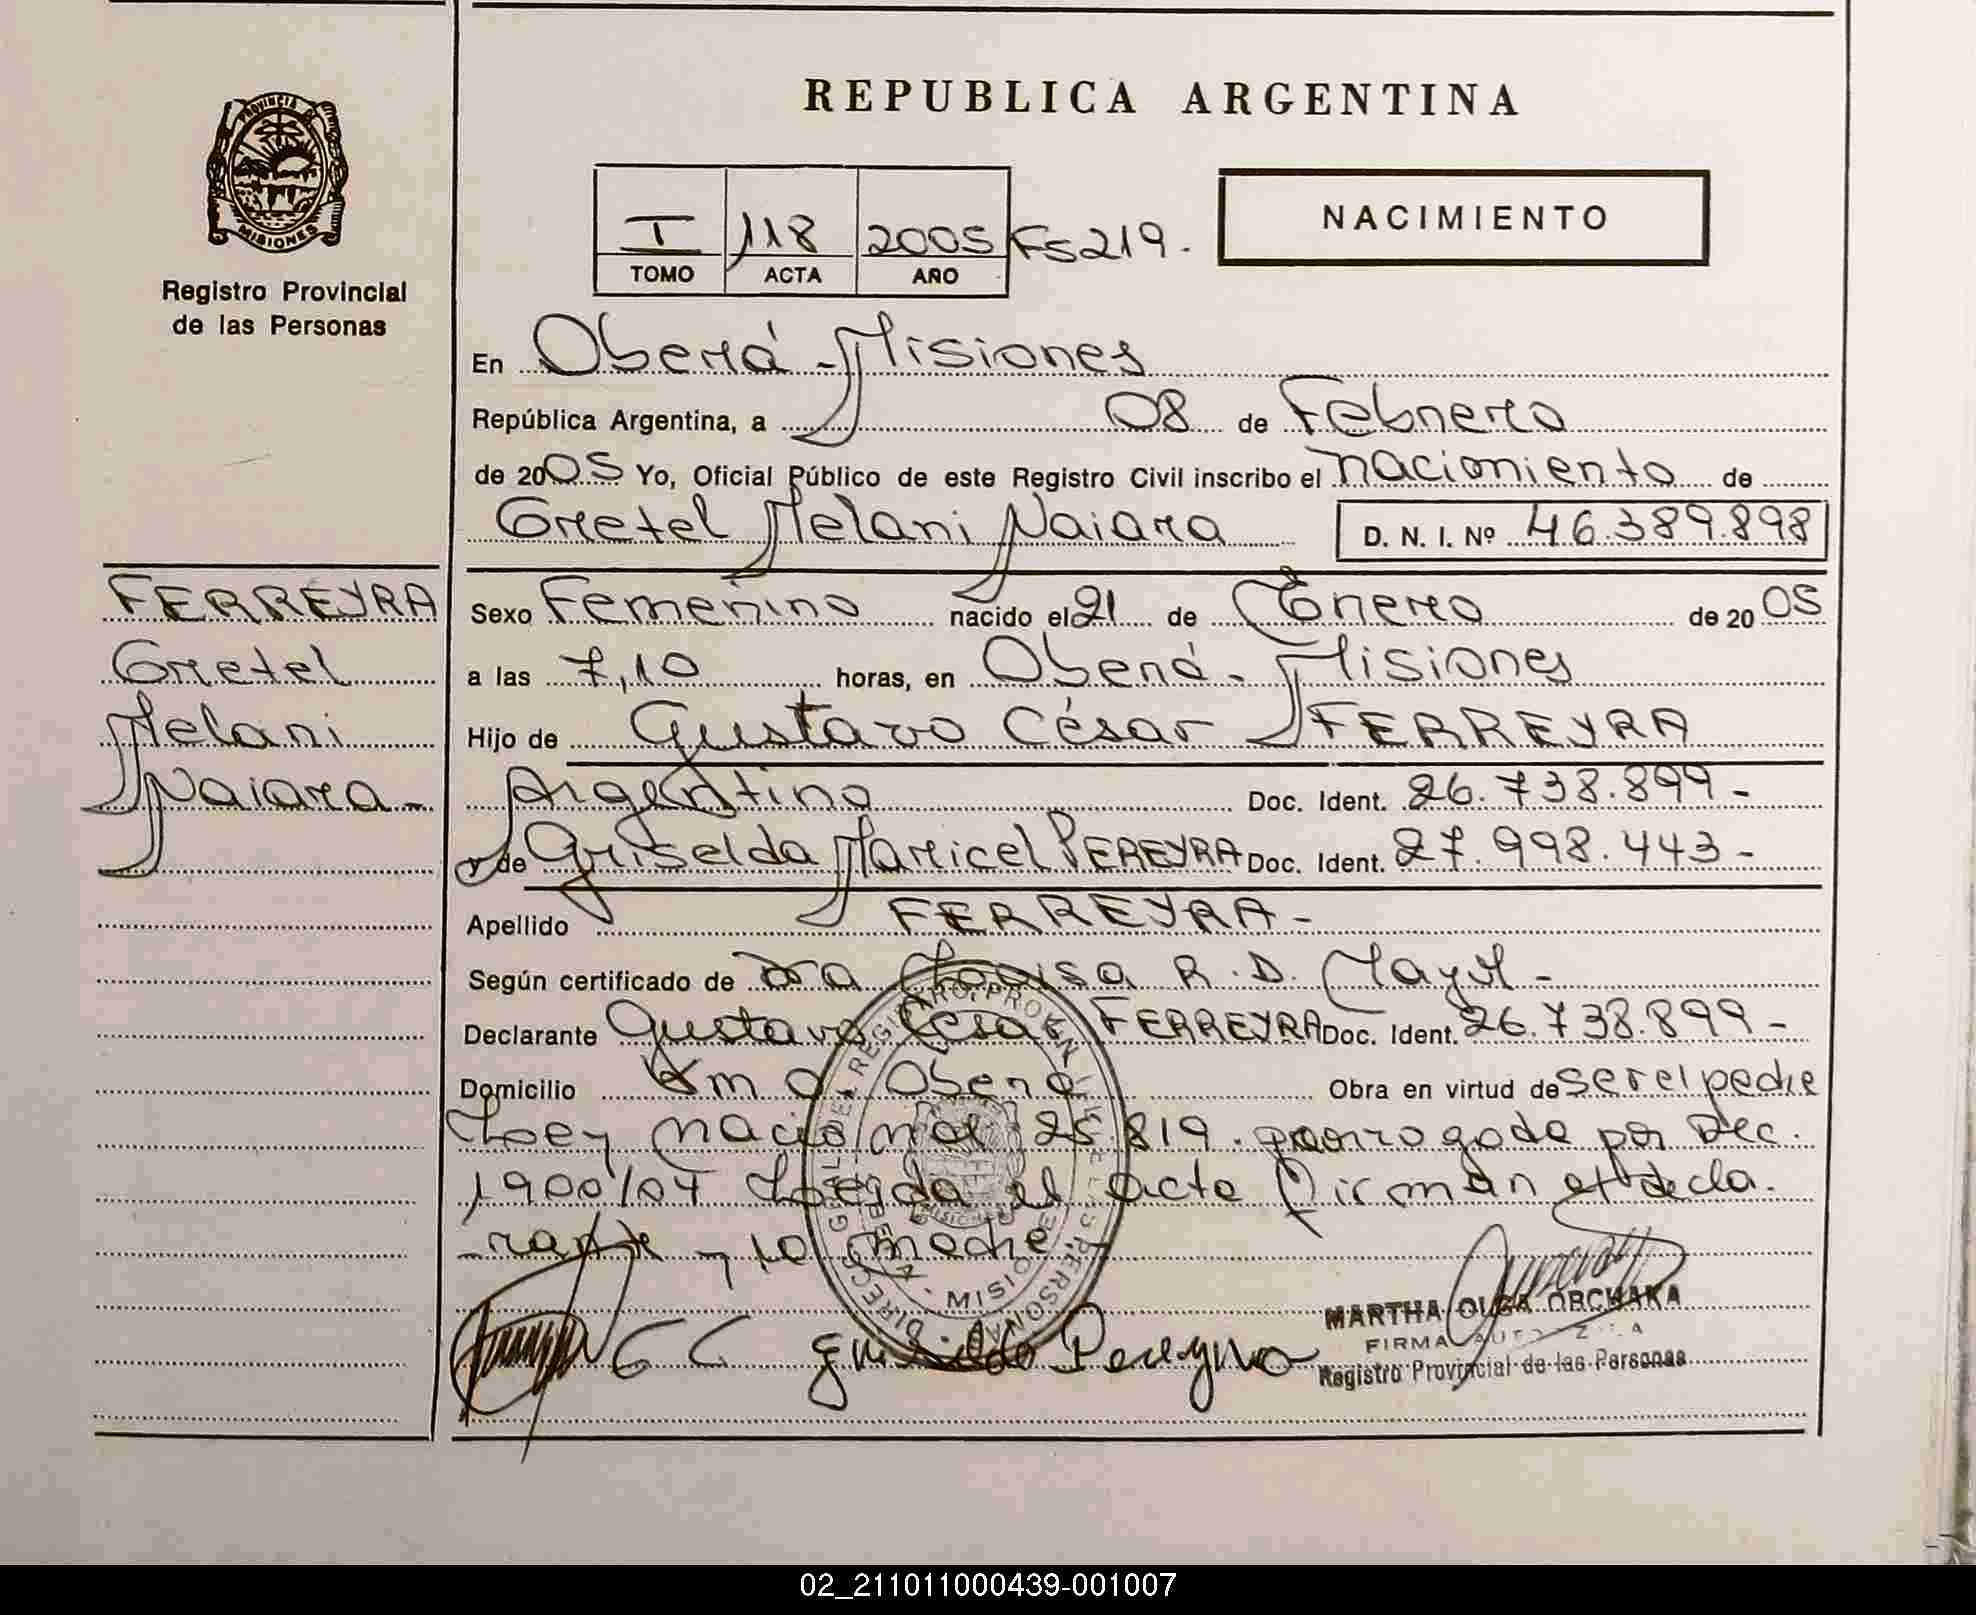 REPUBLICA ARGENTINA
PROVINCIA DE MISIONES
Registro Provincial
de las Personas
I 118 2005 Fs 219.
TOMO ACTA AÑO
NACIMIENTO
En Oberá - Misiones
República Argentina, a 08 de Febrero
de 2005 Yo, Oficial Público de este Registro Civil inscribo el nacimiento de
Gretel Melani Naiara D. N. I. Nº 46.389.898
FERREYRA
Gretel
Melani
Naiara -
Sexo Femenino nacido el 21 de Enero de 20 05
a las 7,10 horas, en Oberá - Misiones
Hijo de Gustavo César FERREYRA
Argentino Doc. Ident. 26.738.899 -
y de Griselda Maricel PEREYRA Doc. Ident. 27.998.443 -
Apellido FERREYRA -
Según certificado de Dra Luisa R. D.
Declarante Gustavo César FERREYRA Doc. Ident. 26.738.899 -
Domicilio Oberá Obra en virtud de ser el padre
Ley Nacional 25.819. prorrogada por Dec.
1900/04 Leída el acta firman el decla.
rante y la madre.
MARTHA OLGA ORCHAKA
FIRMA AUTORIZADA
Registro Provincial de las Personas
Griselda Pereyra
02_211011000439-001007